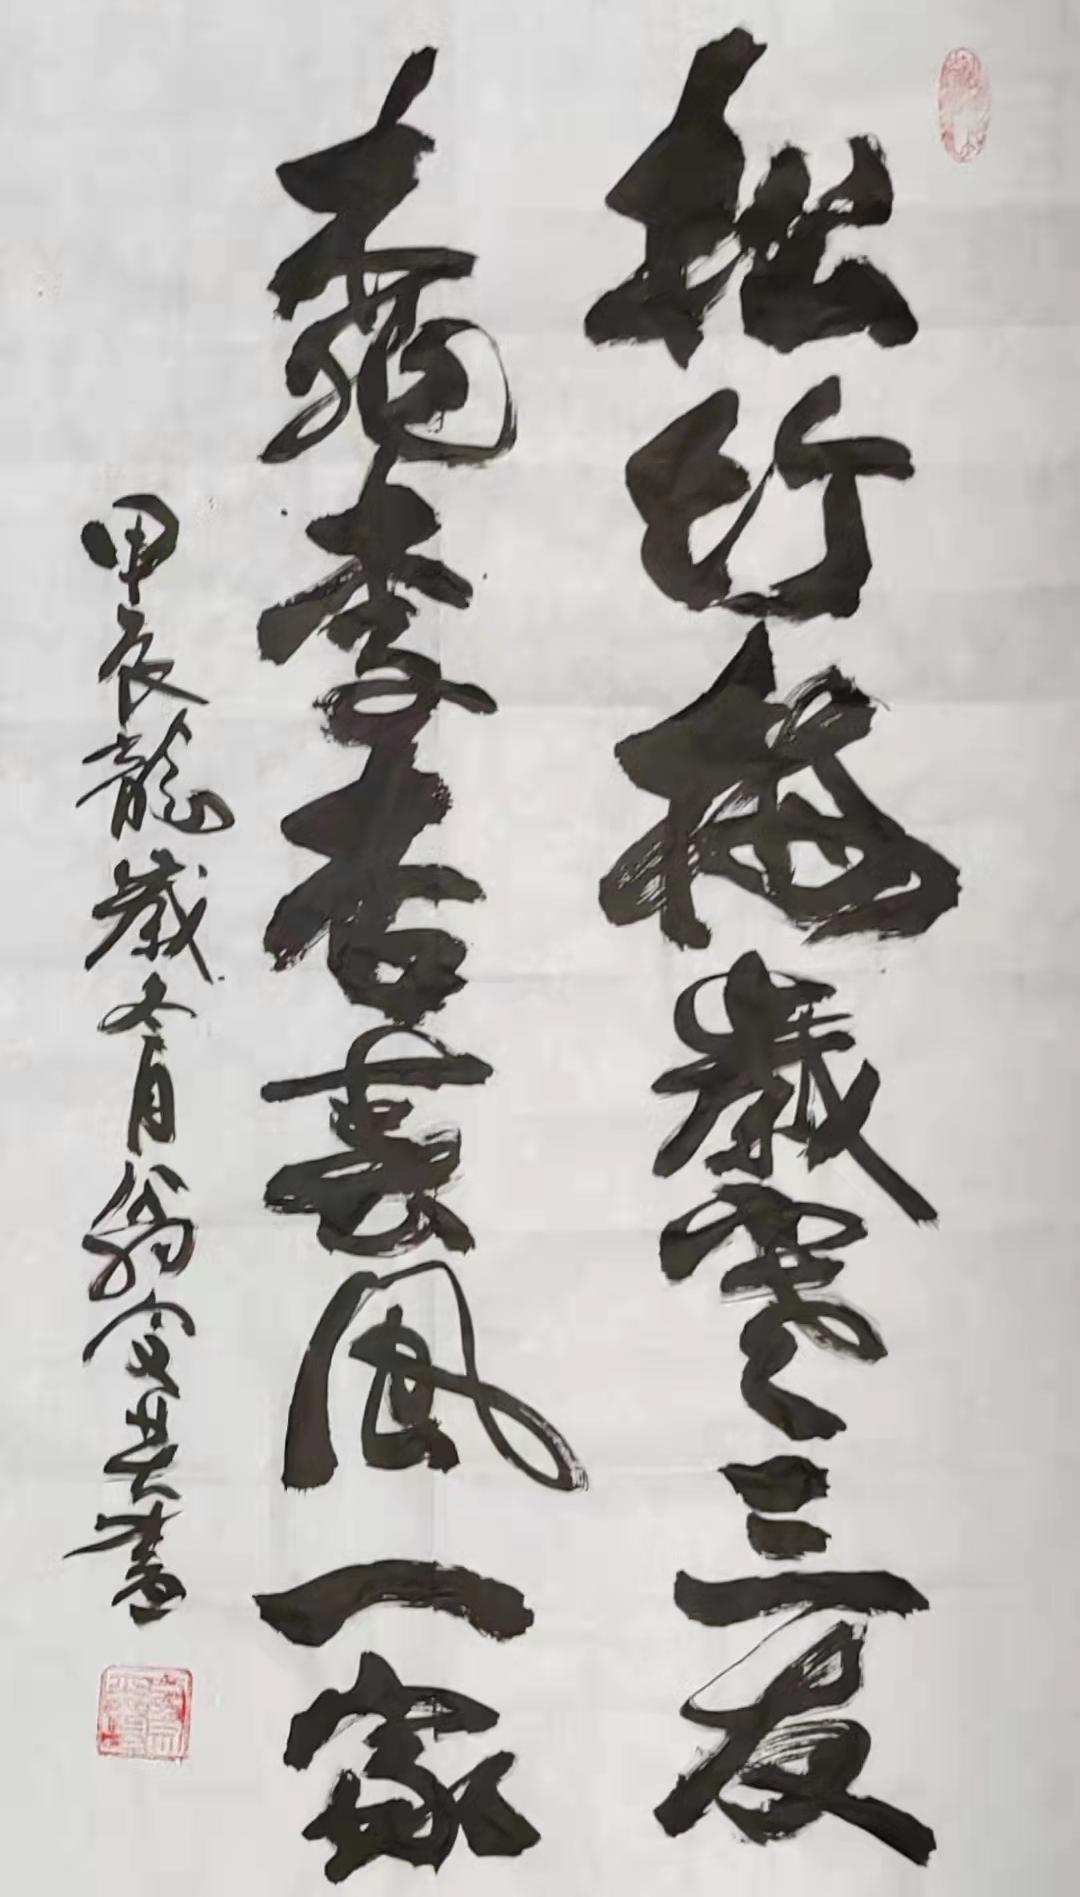 松竹梅歲寒三友
桃李杏春風一家
甲辰龍歲冬月翁書